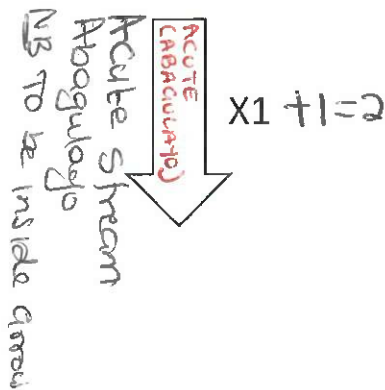 ACUTE
(ABAGULAYO)
X1 +1=2
Acute Stream
Abagulayo
NB To be inside arrow